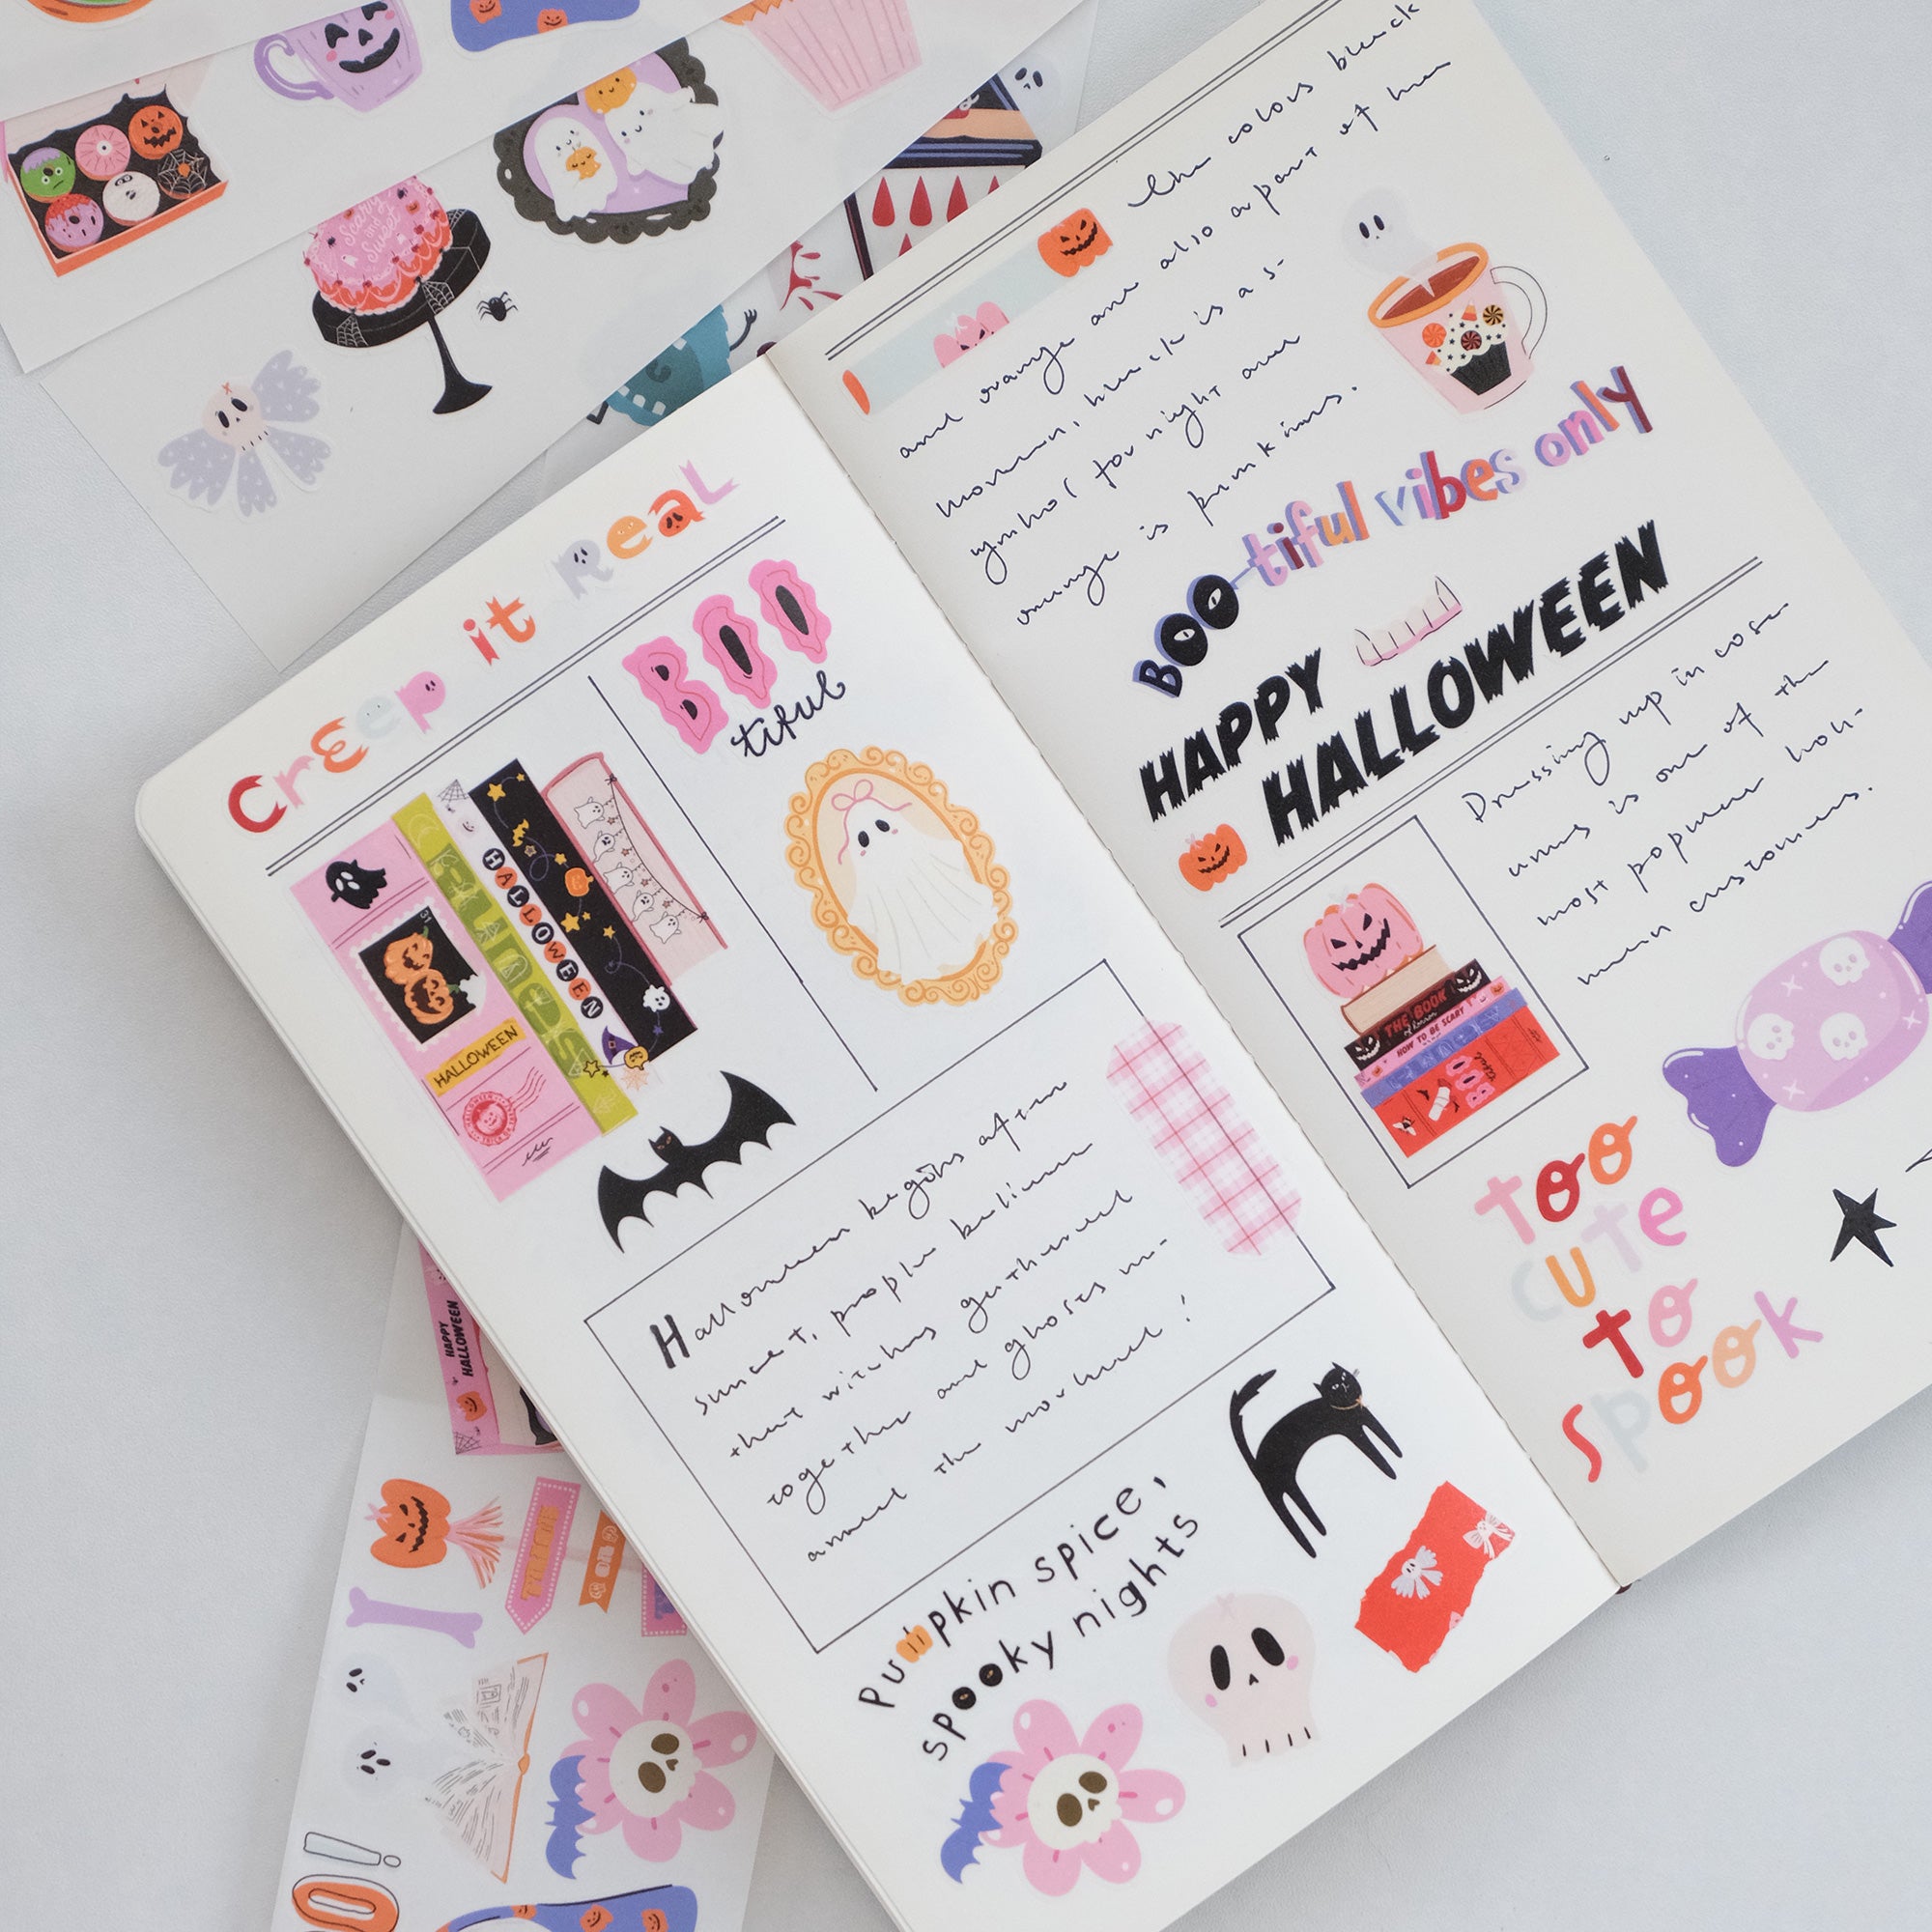 Creep it Real
BOO
tiful
HALLOWEEN
HALLOWEEN
31
Halloween begins after
sunset, people believe
that witches gathered
together and ghosts ro-
amed the
Pumpkin spice,
spooky nights
The colors black
and orange are also a part of
black is a s-
ymbol for night and
orange is pumkins.
BOO-tiful vibes only
HAPPY
HALLOWEEN
Dressing up in cost-
umes is one of the
most popular
customs.
THE BOOK
HOW TO BE SCARY
BOO
too
cute
to
spook
Scary
and
Sweet
HAPPY
HALLOWEEN